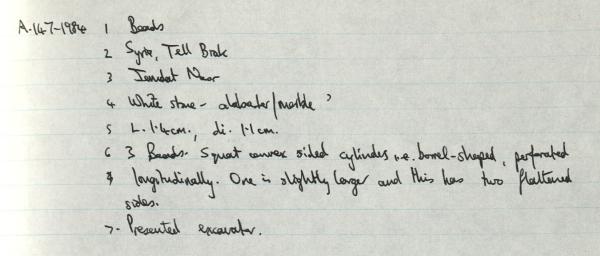 A.147-1984 1 Beads
2 Syria, Tell Brak
3 Jemdat Nasr
4 White stone - alabaster/marble ?
5 L. 1.4cm., di. 1.1cm.
6 3 Beads. Squat convex sided cylinders i.e. barrel-shaped, perforated
longitudinally. One is slightly larger and this has two flattened
sides.
7. Presented excavator.